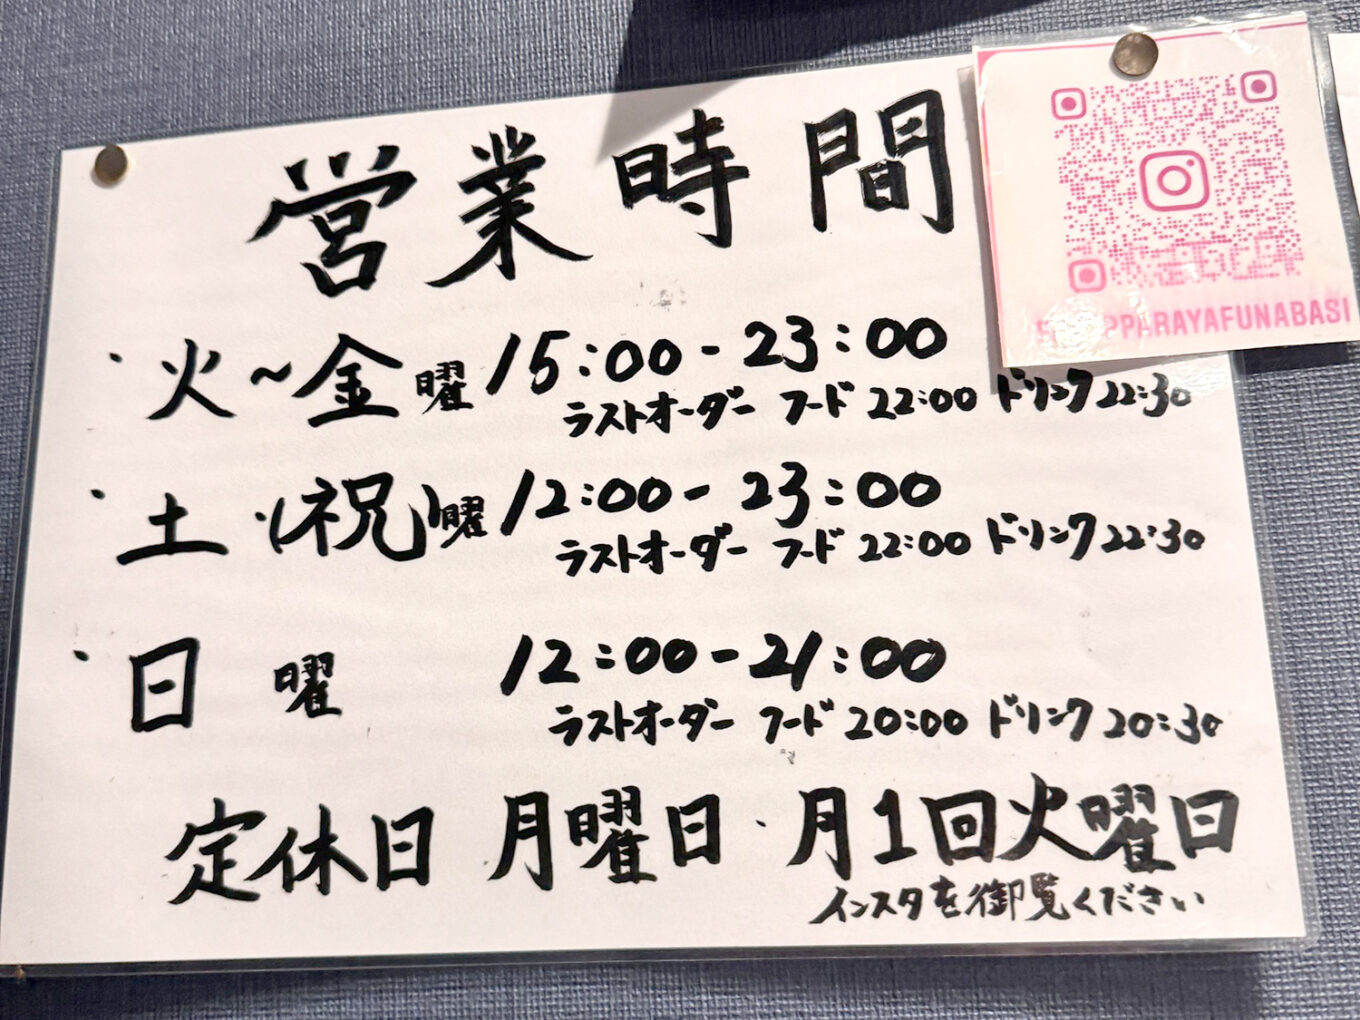 営業時間
・火～金曜 15:00-23:00
ラストオーダー フード 22:00 ドリンク 22:30
・土・(祝)曜 12:00-23:00
ラストオーダー フード 22:00 ドリンク 22:30
・日曜 12:00-21:00
ラストオーダー フード 20:00 ドリンク 20:30
定休日 月曜日・月1回火曜日
インスタを御覧ください